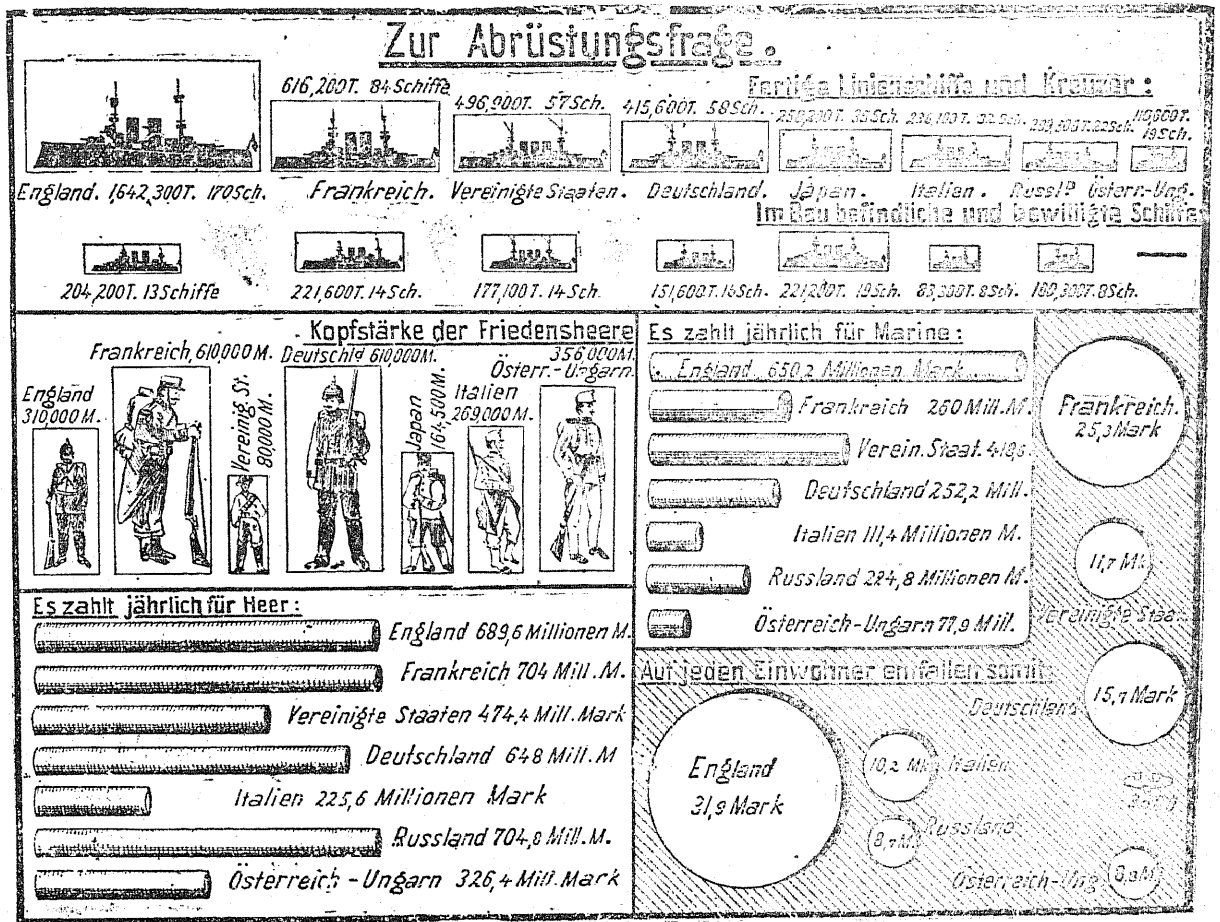 Zur Abrüstungsfrage.
Fertige Linienschiffe und Kreuzer:
England. 1,642,300T. 170Sch.
616,200T. 84Schiffe
Frankreich.
496,900T. 57Sch.
Vereinigte Staaten.
415,600T. 58Sch.
Deutschland.
35Sch.
Japan.
Italien.
22Sch.
Russld
19Sch.
Österr.-Ung.
Im Bau befindliche und bewilligte Schiffe
204,200T. 13Schiffe
221,600T. 14Sch.
177,100T. 14Sch.
151,600T.
8Sch.
8Sch.
Kopfstärke der Friedensheere
England
310,000M.
Frankreich, 610,000M.
Vereinig. St.
80,000M.
Deutschld 610,000M.
Japan
164,500M.
Italien
269,000M.
356,000M.
Österr.-Ungarn.
Es zahlt jährlich für Heer:
England 689,6 Millionen M.
Frankreich 704 Mill. M.
Vereinigte Staaten 474,4 Mill. Mark
Deutschland 648 Mill. M
Italien 225,6 Millionen Mark
Russland 704,8 Mill. M.
Österreich-Ungarn 326,4 Mill. Mark
Es zahlt jährlich für Marine:
England 650,2 Millionen Mark
Frankreich 260 Mill. M.
Verein. Staat.
Deutschland 252,2 Mill.
Italien 111,4 Millionen M.
Russland 224,8 Millionen M.
Österreich-Ungarn 77,9 Mill.
Auf jeden Einwohner entfallen somit:
Frankreich.
25,3 Mark
11,7 Mk.
Vereinigte Staa
Deutschland
15,7 Mark
England
31,9 Mark
10,2 Mk. Italien
8,7 M. Russland
Österreich-Ung.